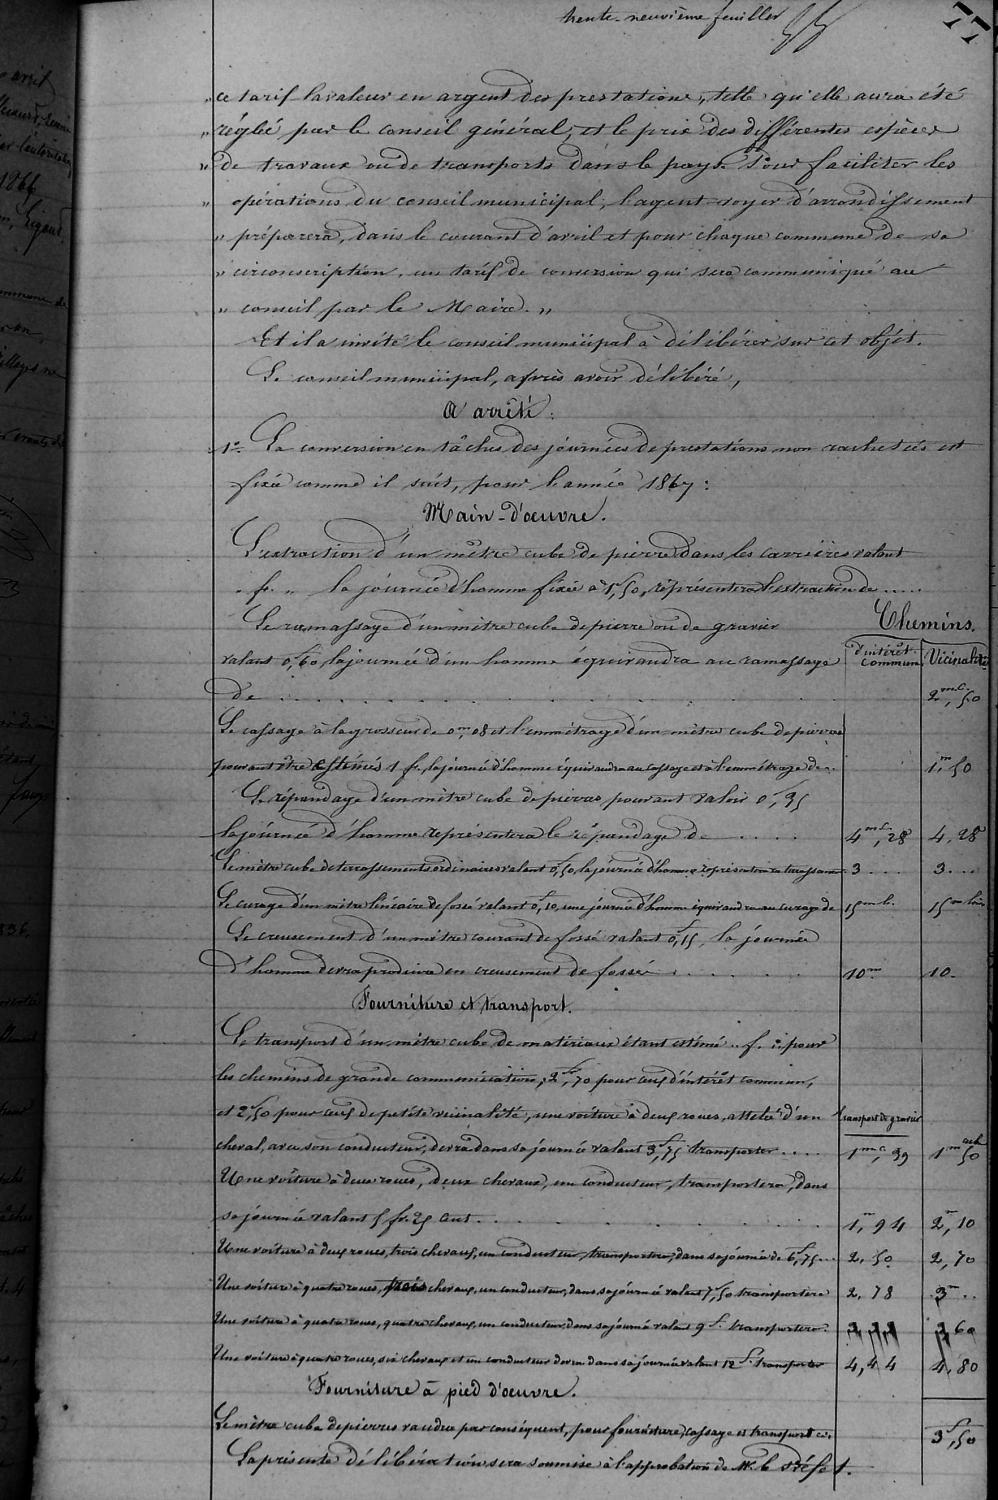 trente-neuvième feuillet
77
" ce tarif la valeur en argent des prestations, telle qu'elle aura été
" réglée par le conseil général, et le prix des différentes espèces
" de travaux ou de transports dans le pays. Pour faciliter les
" opérations du conseil municipal, l'agent-voyer d'arrondissement
" préparera, dans le courant d'avril et pour chaque commune de sa
" circonscription, un tarif de conversion qui sera communiqué au
" conseil par le Maire. "
Et il a invité le conseil municipal à délibérer sur cet objet.
Le conseil municipal, après avoir délibéré,
A arrêté:
1º La conversion en tâches des journées de prestations non rachetées est
fixée comme il suit, pour l'année 1867:
Main-d'œuvre.
L'extraction d'un mètre cube de pierre dans les carrières valant
" fr. " la journée d'homme fixée à 1f,50, représentera l'extraction de .....
Le ramassage d'un mètre cube de pierre ou de gravier
Chemins.
valant 0f,60 la journée d'un homme équivaudra au ramassage
d'intérêt commun Vicinalité
de . . . . . . . . . . 2m.c.,50
Le cassage à la grosseur de 0m,08 et l'emmétrage d'un mètre cube de pierre
pouvant être estimés 1 fr, la journée d'homme équivaudra au cassage et à l'emmétrage de .. 1m,50
Le répandage d'un mètre cube de pierres pouvant valoir 0f,35
la journée d'homme représentera le répandage de . . . . 4m.c.,28 4,28
Le mètre cube de terrassements ordinaires valant 0f,50, la journée d'homme représentera en terrassement 3 .... 3 ....
Le curage d'un mètre linéaire de fossé valant 0f,10, une journée d'homme équivaudra au curage de 15m l. 15m
Le creusement d'un mètre courant de fossé valant 0f,15, la journée
d'homme devra produire en creusement de fossé . . . . . 10m 10.
Fourniture et transport.
Le transport d'un mètre cube de matériaux étant estimé .. f. .. pour
les chemins de grande communication, 2f,70 pour ceux d'intérêt commun,
et 2f,50 pour ceux de petite vicinalité, une voiture à deux roues, attelée d'un
transport de gravier
cheval, avec son conducteur, devra dans sa journée valant 3f,75 transporter .... 1m.c.,39 1m cub 50
Une voiture à deux roues, deux chevaux, un conducteur, transportera, dans
sa journée valant 5 fr. 25 cent. . . . . . . . . 1m,94 2m,10
Une voiture à deux roues, trois chevaux, un conducteur transportera, dans sa journée de 6f,75 ... 2,50 2,70
Une voiture à quatre roues, trois chevaux, un conducteur, dans sa journée valant 7f,50 transportera 2,78 3m ..
Une voiture à quatre roues, quatre chevaux, un conducteur, dans sa journée valant 9f. transportera. 3,60
Une voiture à quatre roues, six chevaux et un conducteur devra dans sa journée valant 12f. transporter 4,44 4,80
Fourniture à pied d'œuvre.
Le mètre cube de pierres vaudra par conséquent, pour fourniture, cassage et transport ci. 3f,50
La présente délibération sera soumise à l'approbation de Mr. le Préfet.